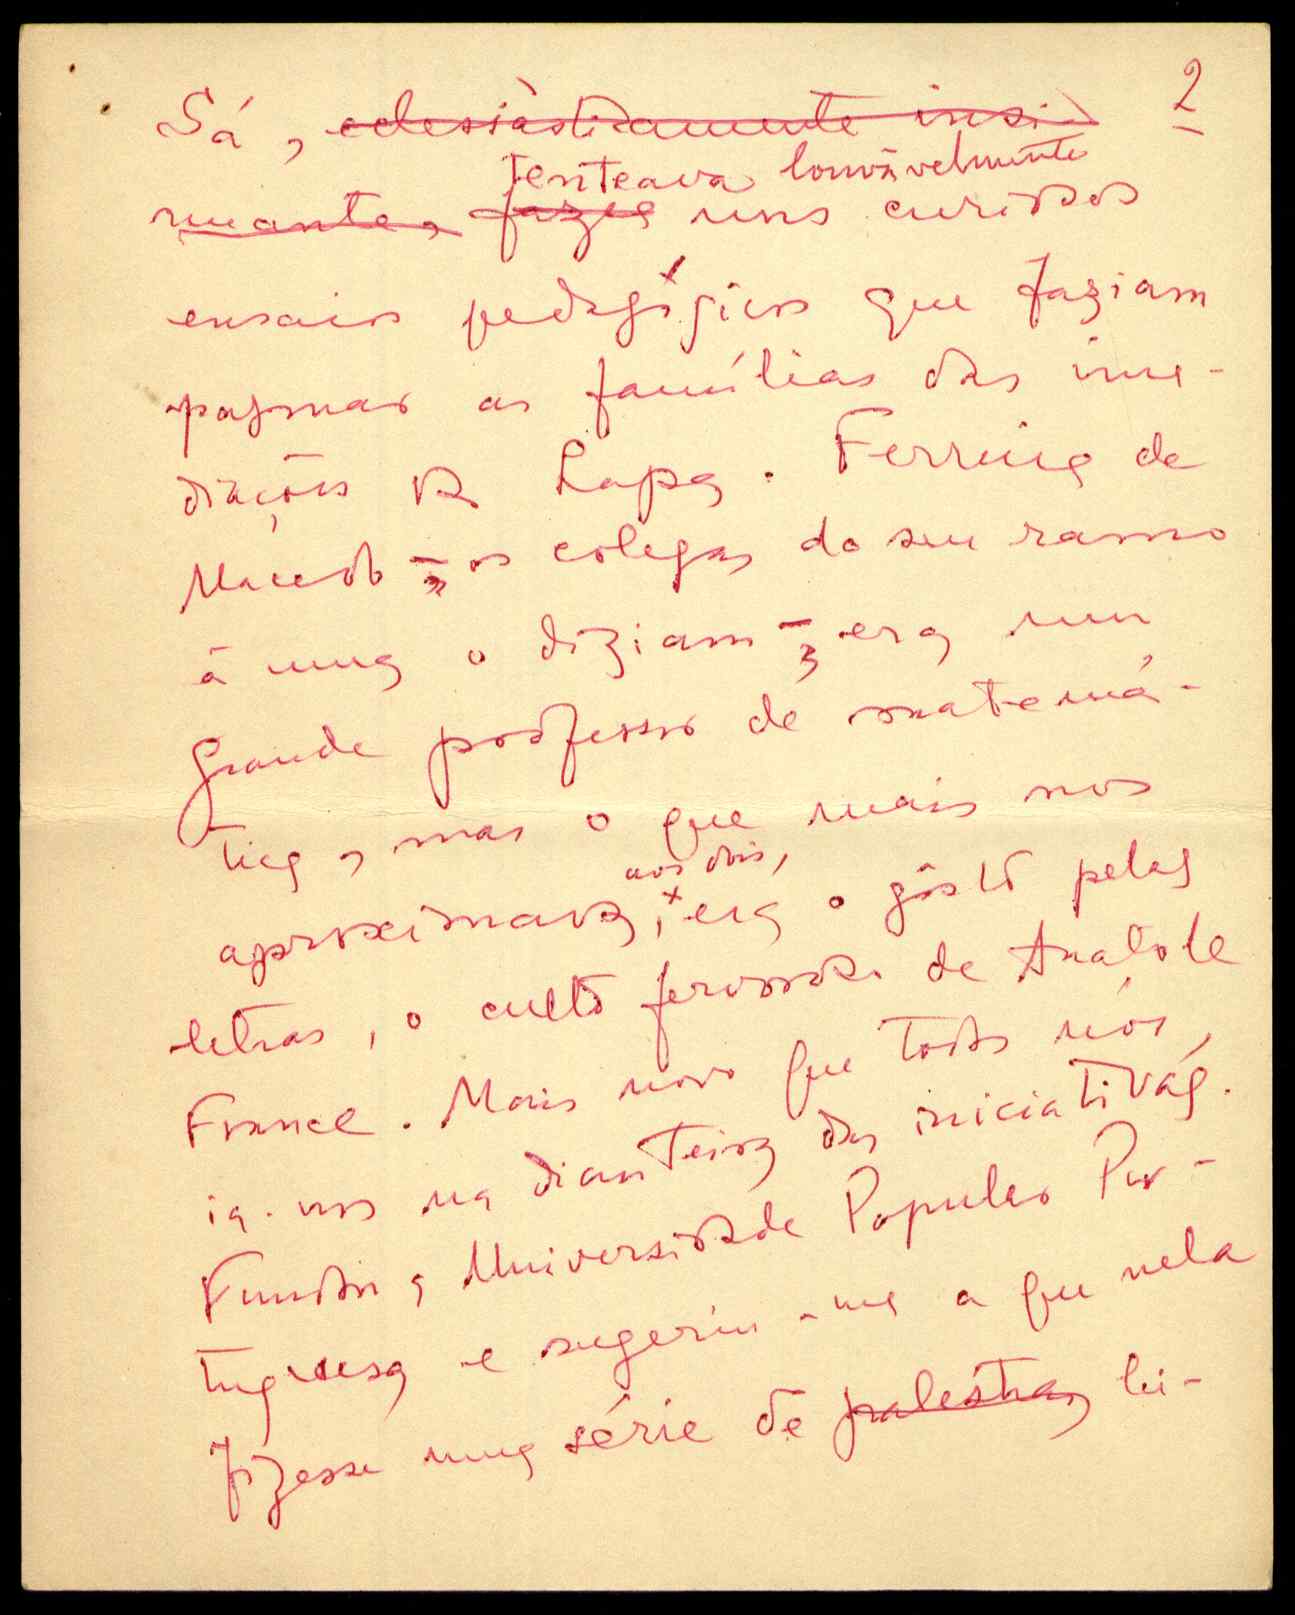 2
Sá, eclesiàsticamente insi-
nuante, fazia uns curiosos
tenteava louvàvelmente
ensaios pedagógicos que faziam
pasmar as famílias das ime-
diações da Lapa. Ferreira de
Macedo – os colegas do seu ramo
à uma o diziam – era um
grande professor de matemá-
tica, mas o que mais nos
aproximava, aos dois, era o gôsto pelas
letras, o culto fervoroso de Anatole
France. Mais novo que todos nós,
ia-nos na dianteira das iniciativas.
Fundou a Universidade Popular Por-
tuguesa e sugeriu-me a que nela
fizesse uma série de palestras lei-